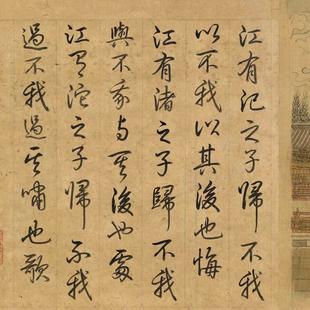 江有汜之子歸不我
以不我以其後也悔
江有渚之子歸不我
與不我與其後也處
江有沱之子歸不我
過不我過其嘯也歌